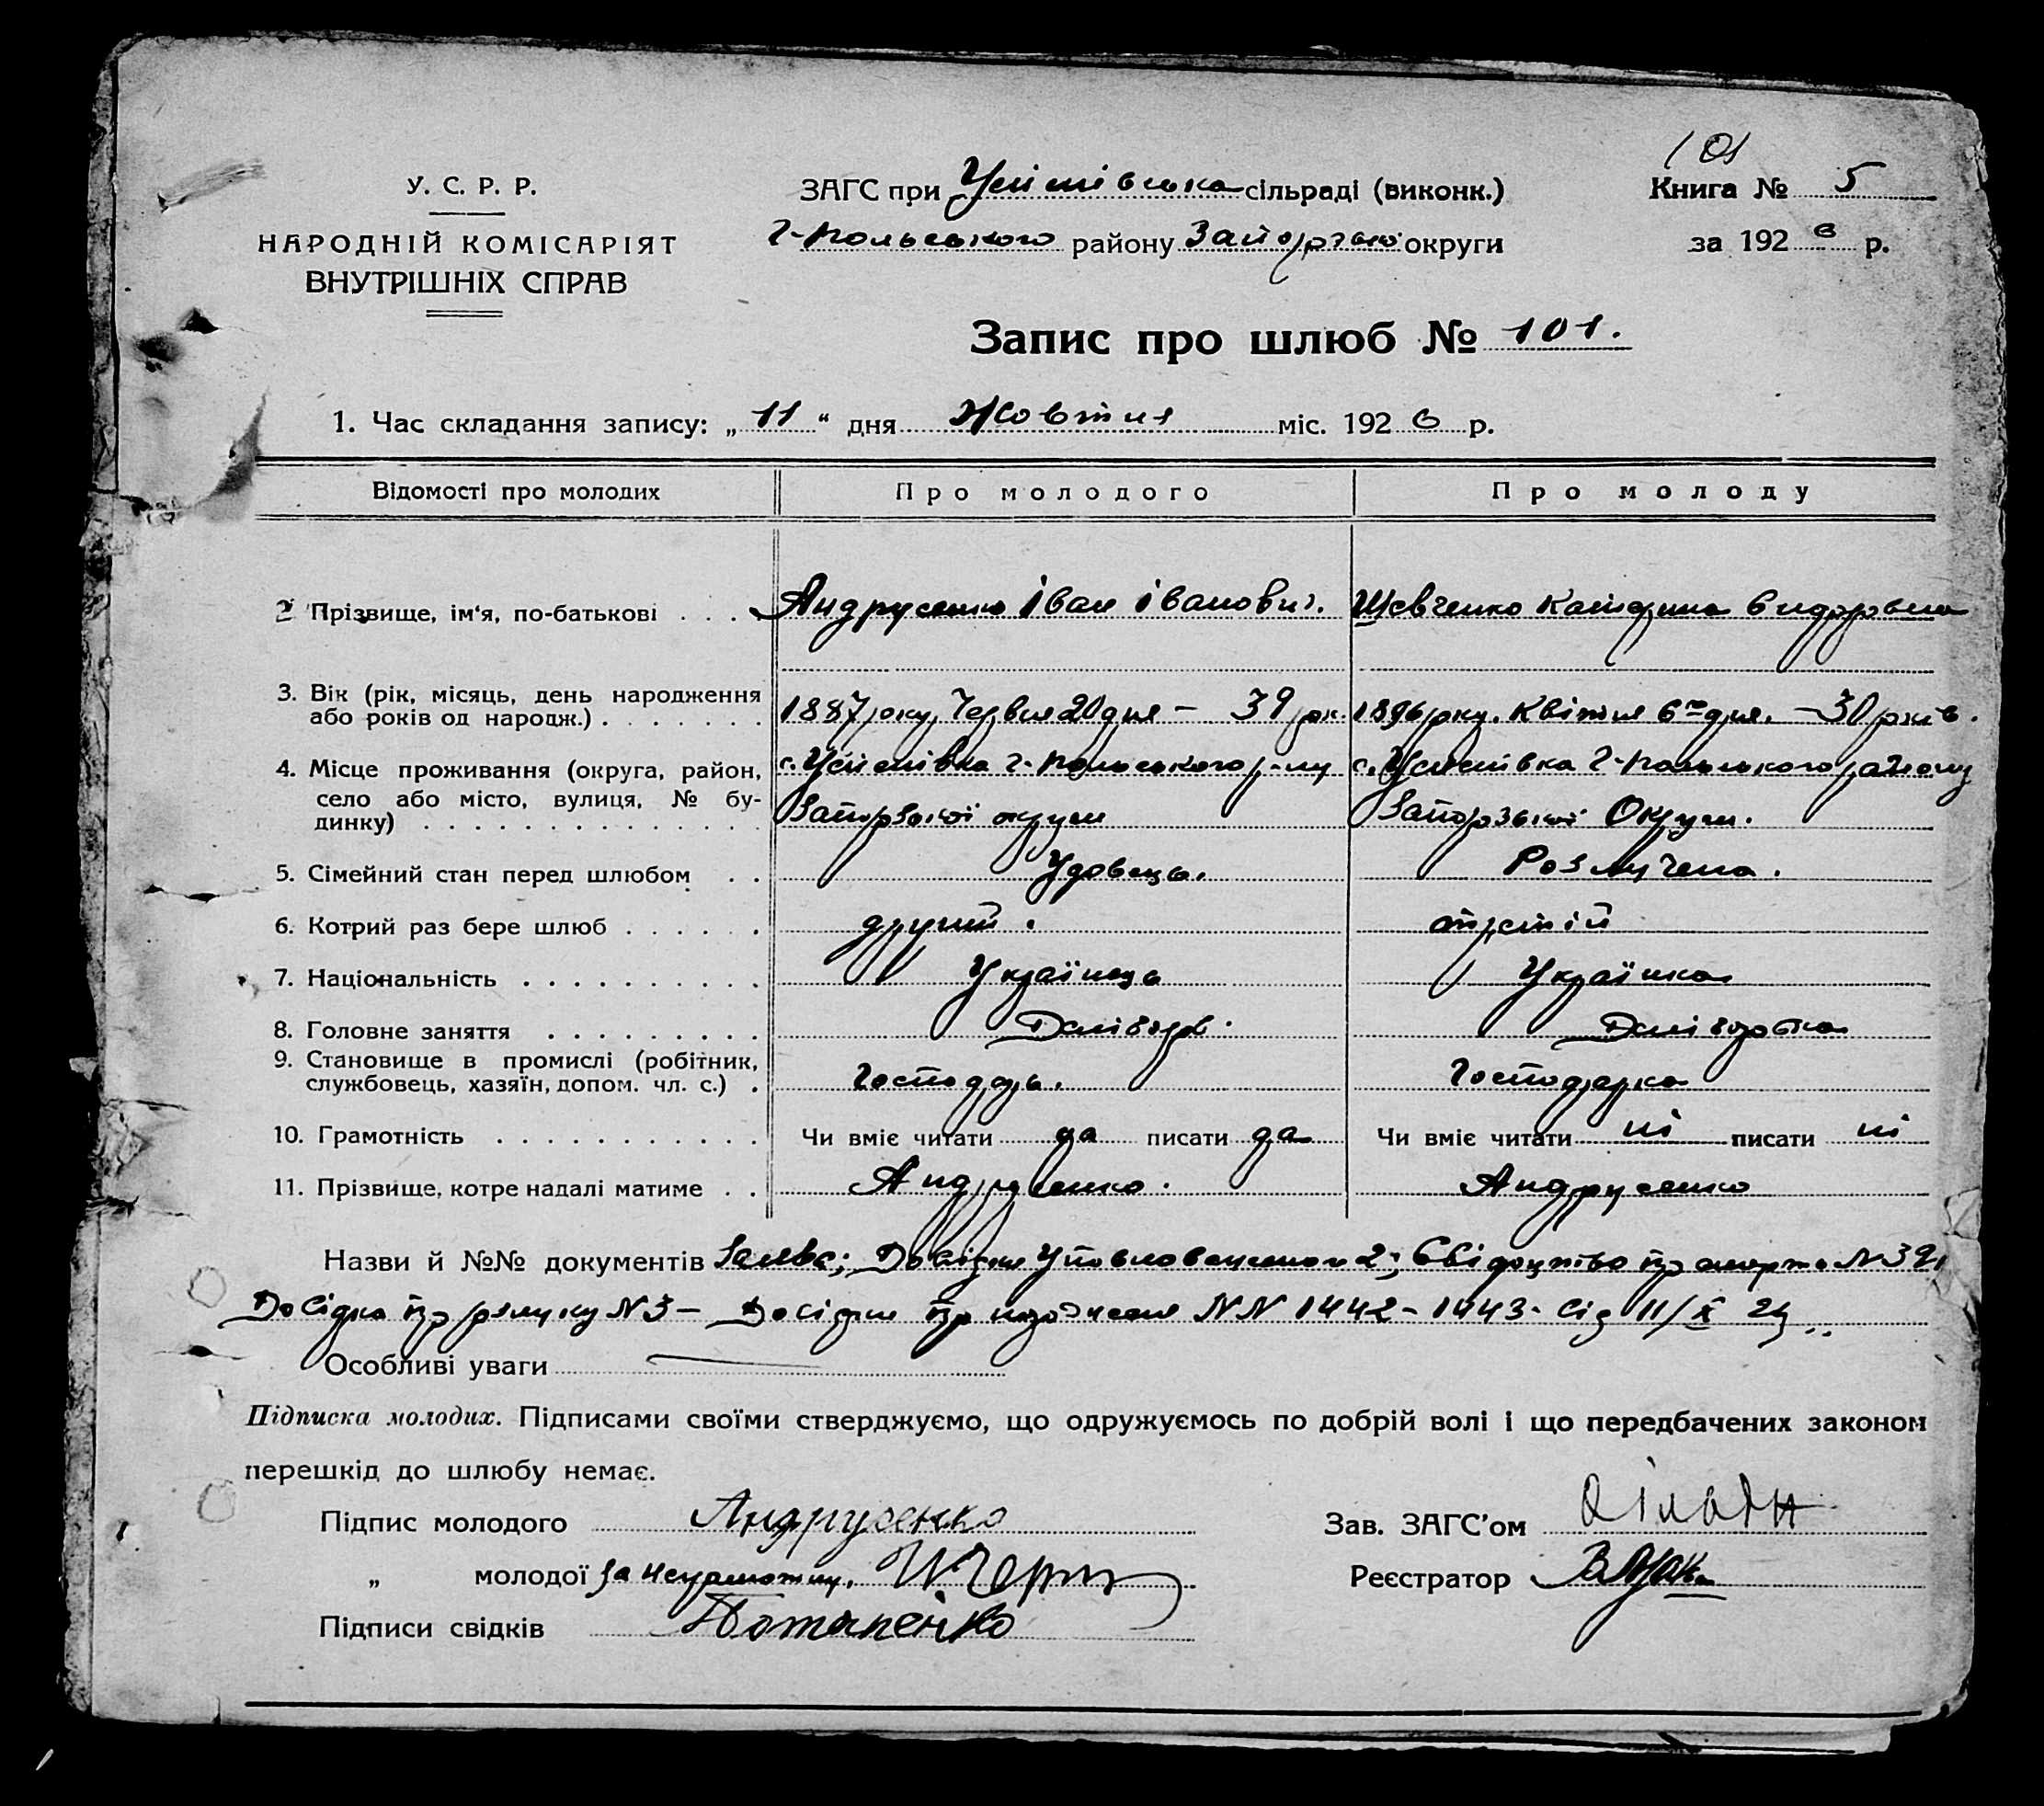 101
У. С. Р. Р.
ЗАГС при Успенівська сільраді (виконк.)
Книга № 5
НАРОДНІЙ КОМІСАРІЯТ
Г-Польського району Запорізької округи
за 192 6 р.
ВНУТРІШНІХ СПРАВ
Запис про шлюб № 101.
1. Час складання запису: „ 11 “ дня Жовтня міс. 192 6 р.
Відомості про молодих Про молодого Про молоду
2 Прізвище, ім'я, по-батькові . . . Андрусенко Іван Іванович. Шевченко Катерина Сидоровна
3. Вік (рік, місяць, день народження
або років од народж.) . . . . . . . 1887 року, Червня 20 дня – 39 рок. 1896 року. Квітня 6го дня. – 30 років.
4. Місце проживання (округа, район, с. Успенівка Г-Польського р-ну с. Успенівка Г-Польського району
село або місто, вулиця, № бу-
динку) . . . . . . . . . . . . . . Запорізької округи Запорізької Округи.
5. Сімейний стан перед шлюбом . . Удовець. Розлучена.
6. Котрий раз бере шлюб . . . . . . другий. третій
7. Національність . . . . . . . . . . Українець Українка
8. Головне заняття . . . . . . . . . Хлібороб. Хліборобка
9. Становище в промислі (робітник,
службовець, хазяїн, допом. чл. с.) . Господарь. Господарка
10. Грамотність . . . . . . . . . . . Чи вміє читати да писати да Чи вміє читати ні писати ні
11. Прізвище, котре надалі матиме . . Андрусенко. Андрусенко
Назви й №№ документів Заява; Довідки 2; Свідоцтво про смерть N 39,
Довідка про розлуку N 3 – Довідки про NN 1442 - 1443 - від 11/X
Особливі уваги
Підписка молодих. Підписами своїми стверджуємо, що одружуємось по добрій волі і що передбачених законом
перешкід до шлюбу немає.
Підпис молодого Андрусенко
Зав. ЗАГС'ом
„ молодої за неграмотну,
Реєстратор
Підписи свідків Потапенко